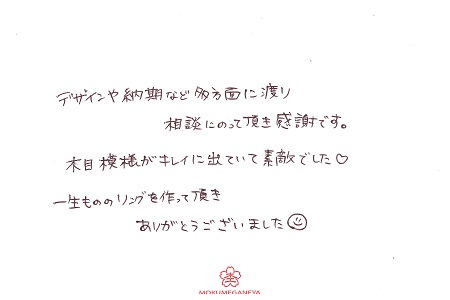 デザインや納期など多方面に渡り
相談にのって頂き感謝です。
木目模様がキレイに出ていて素敵でした♡
一生もののリングを作って頂き
ありがとうございました☺
MOKUMEGANEYA